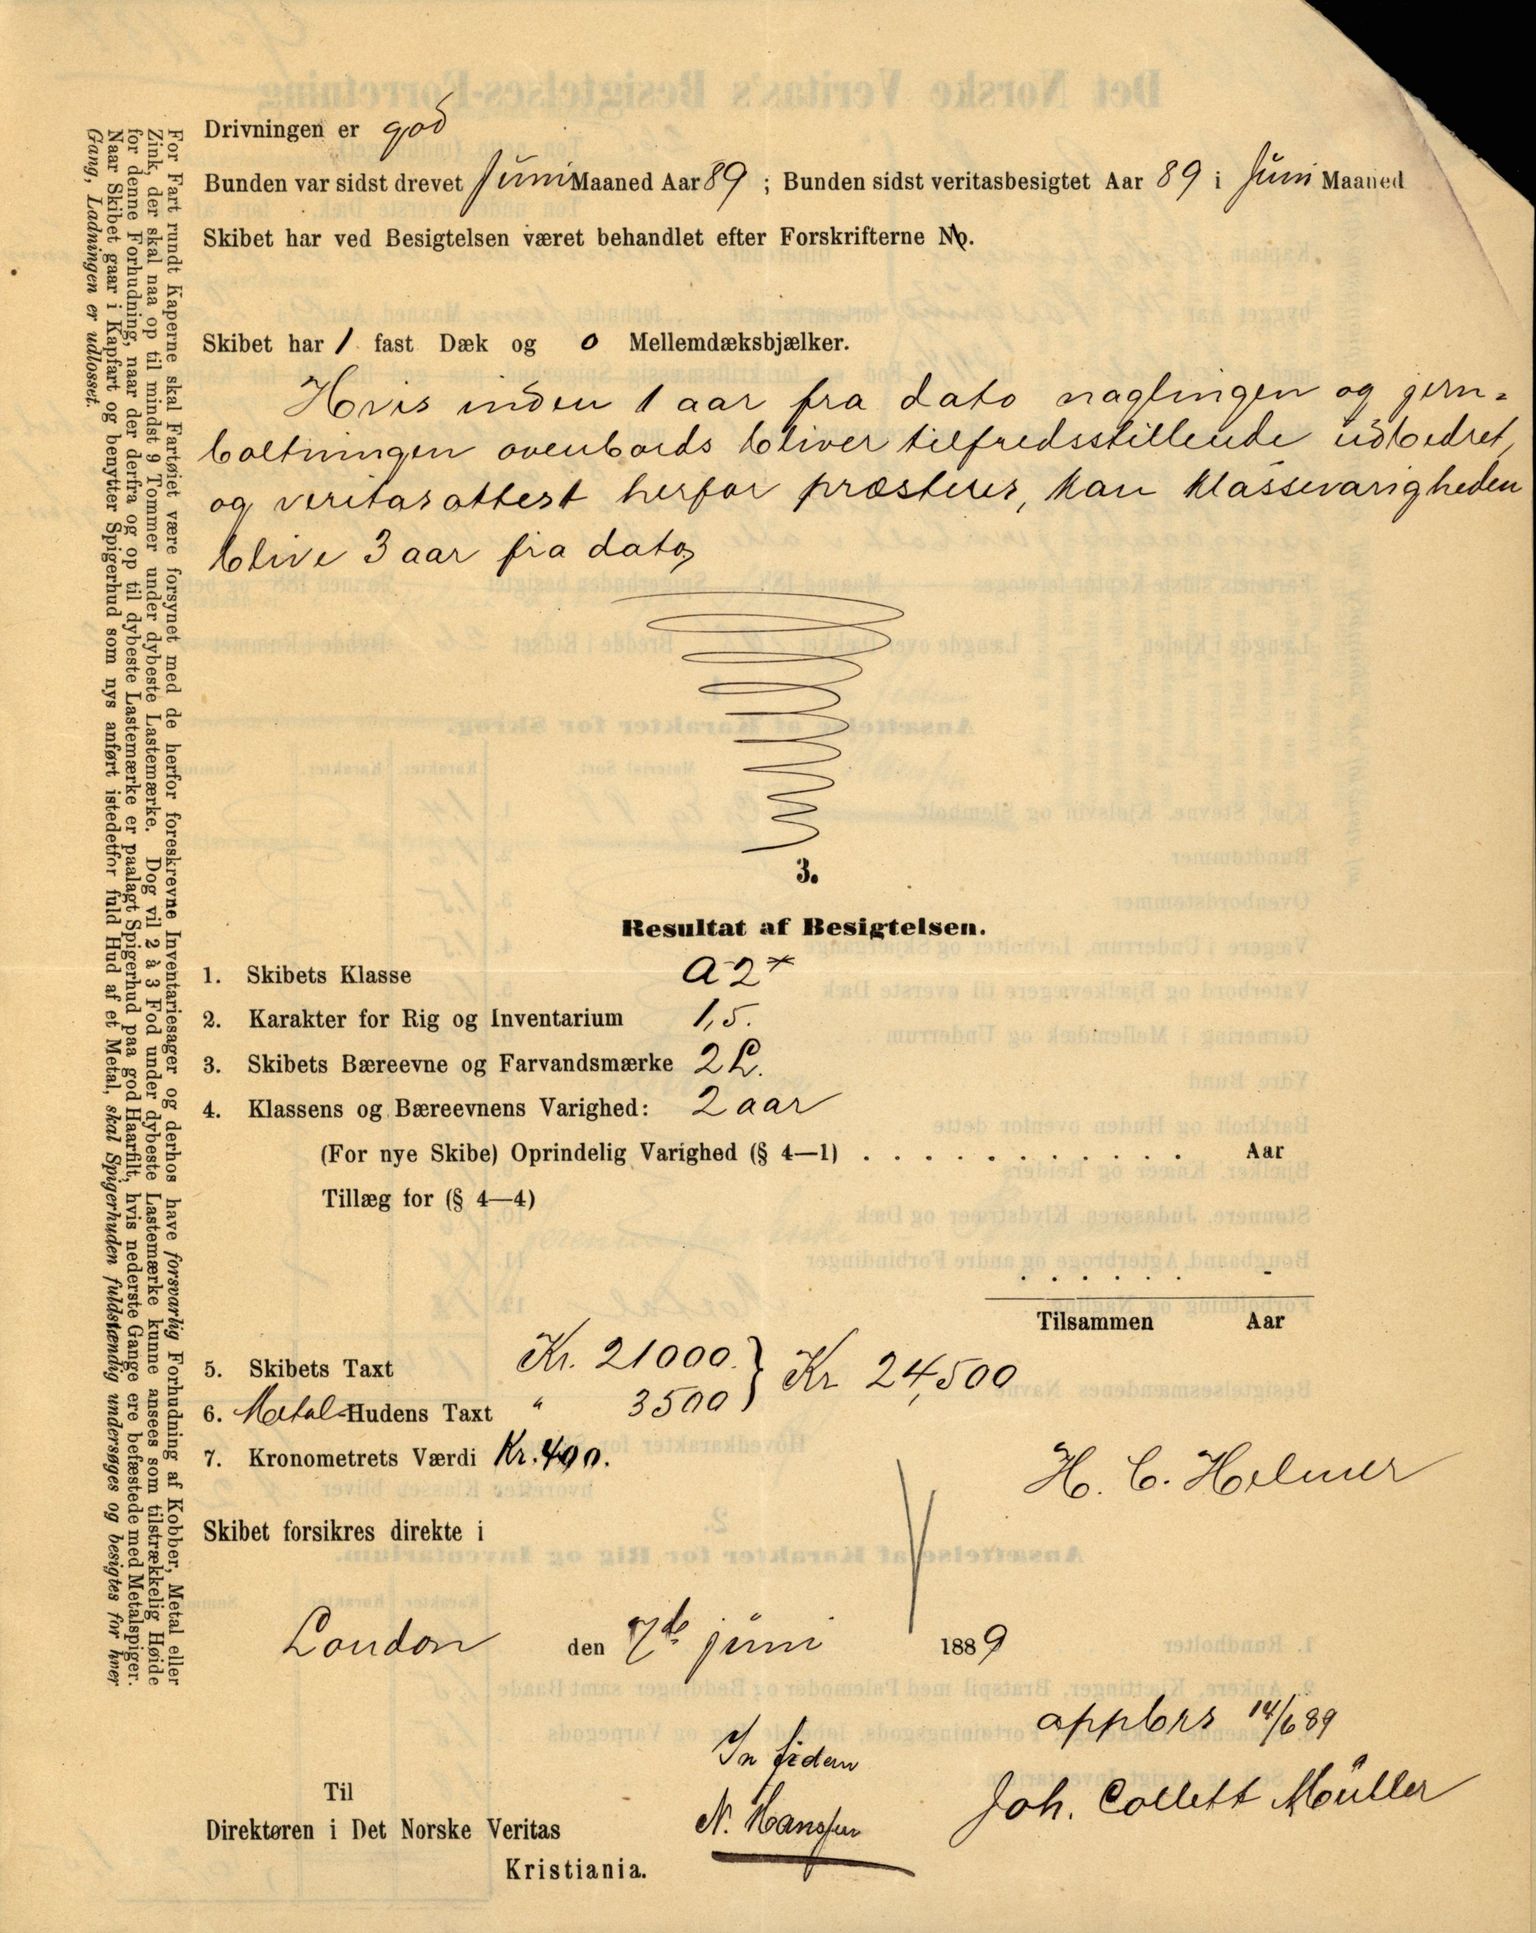 Drivningen er god
Bunden var sidst drevet Juni Maaned Aar 89 ; Bunden sidst veritasbesigtet Aar 89 i Juni Maaned
Skibet har ved Besigtelsen været behandlet efter Forskrifterne No.
Skibet har 1 fast Dæk og 0 Mellemdæksbjælker.
Hvis inden 1 aar fra dato naglingen og jern-
boltningen ovenbords bliver tilfredsstillende udbedret,
og veritasattest herfor præsteres, kan klassevarigheden
blive 3 aar fra dato,
3.
Resultat af Besigtelsen.
1. Skibets Klasse A 2*
2. Karakter for Rig og Inventarium 1,5.
3. Skibets Bæreevne og Farvandsmærke 2 L.
4. Klassens og Bæreevnens Varighed: 2 aar
(For nye Skibe) Oprindelig Varighed (§ 4—1) . . . . . . . . . . . . Aar
Tillæg for (§ 4—4)
. . . . . . -
Tilsammen Aar
5. Skibets Taxt Kr. 21000. } Kr 24,500
6. Metal-Hudens Taxt " 3500
7. Kronometrets Værdi Kr. 400.
H. C. Helmer
Skibet forsikres direkte i
London den 7de juni 1889
appbrs 14/6 89
In fidem
Joh. Collett Müller
Til
N. Hanssen
Direktøren i Det Norske Veritas
Kristiania.
For Fart rundt Kaperne skal Fartøiet være forsynet med de herfor foreskrevne Inventariesager og derhos have forsvarlig Forhudning af Kobber, Metal eller
Zink, der skal naa op til mindst 9 Tommer under dybeste Lastemærke. Dog vil 2 à 3 Fod under dybeste Lastemærke kunne ansees som tilstrækkelig Høide
for denne Forhudning, naar der derfra og op til dybeste Lastemærke er paalagt Spigerhud paa god Haarfilt, hvis nederste Gange ere befæstede med Metalspiger.
Naar Skibet gaar i Kapfart og benytter Spigerhud som nys anført istedetfor fuld Hud af et Metal, skal Spigerhuden fuldstændig undersøges og besigtes for hver
Gang, Ladningen er udlosset.